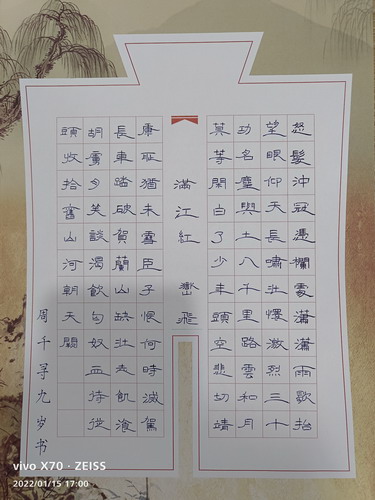 怒髮沖冠憑欄處瀟瀟雨歇抬
望眼仰天長嘯壯懷激烈三十
功名塵與土八千里路雲和月
莫等閑白了少年頭空悲切靖
滿江紅 嶽飛
康恥猶未雪臣子恨何時滅駕
長車踏破賀蘭山缺壯志飢餐
胡虜肉笑談渴飲匈奴血待從
頭收拾舊山河朝天闕
周千寻九岁书
vivo X70 · ZEISS
2022/01/15 17:00